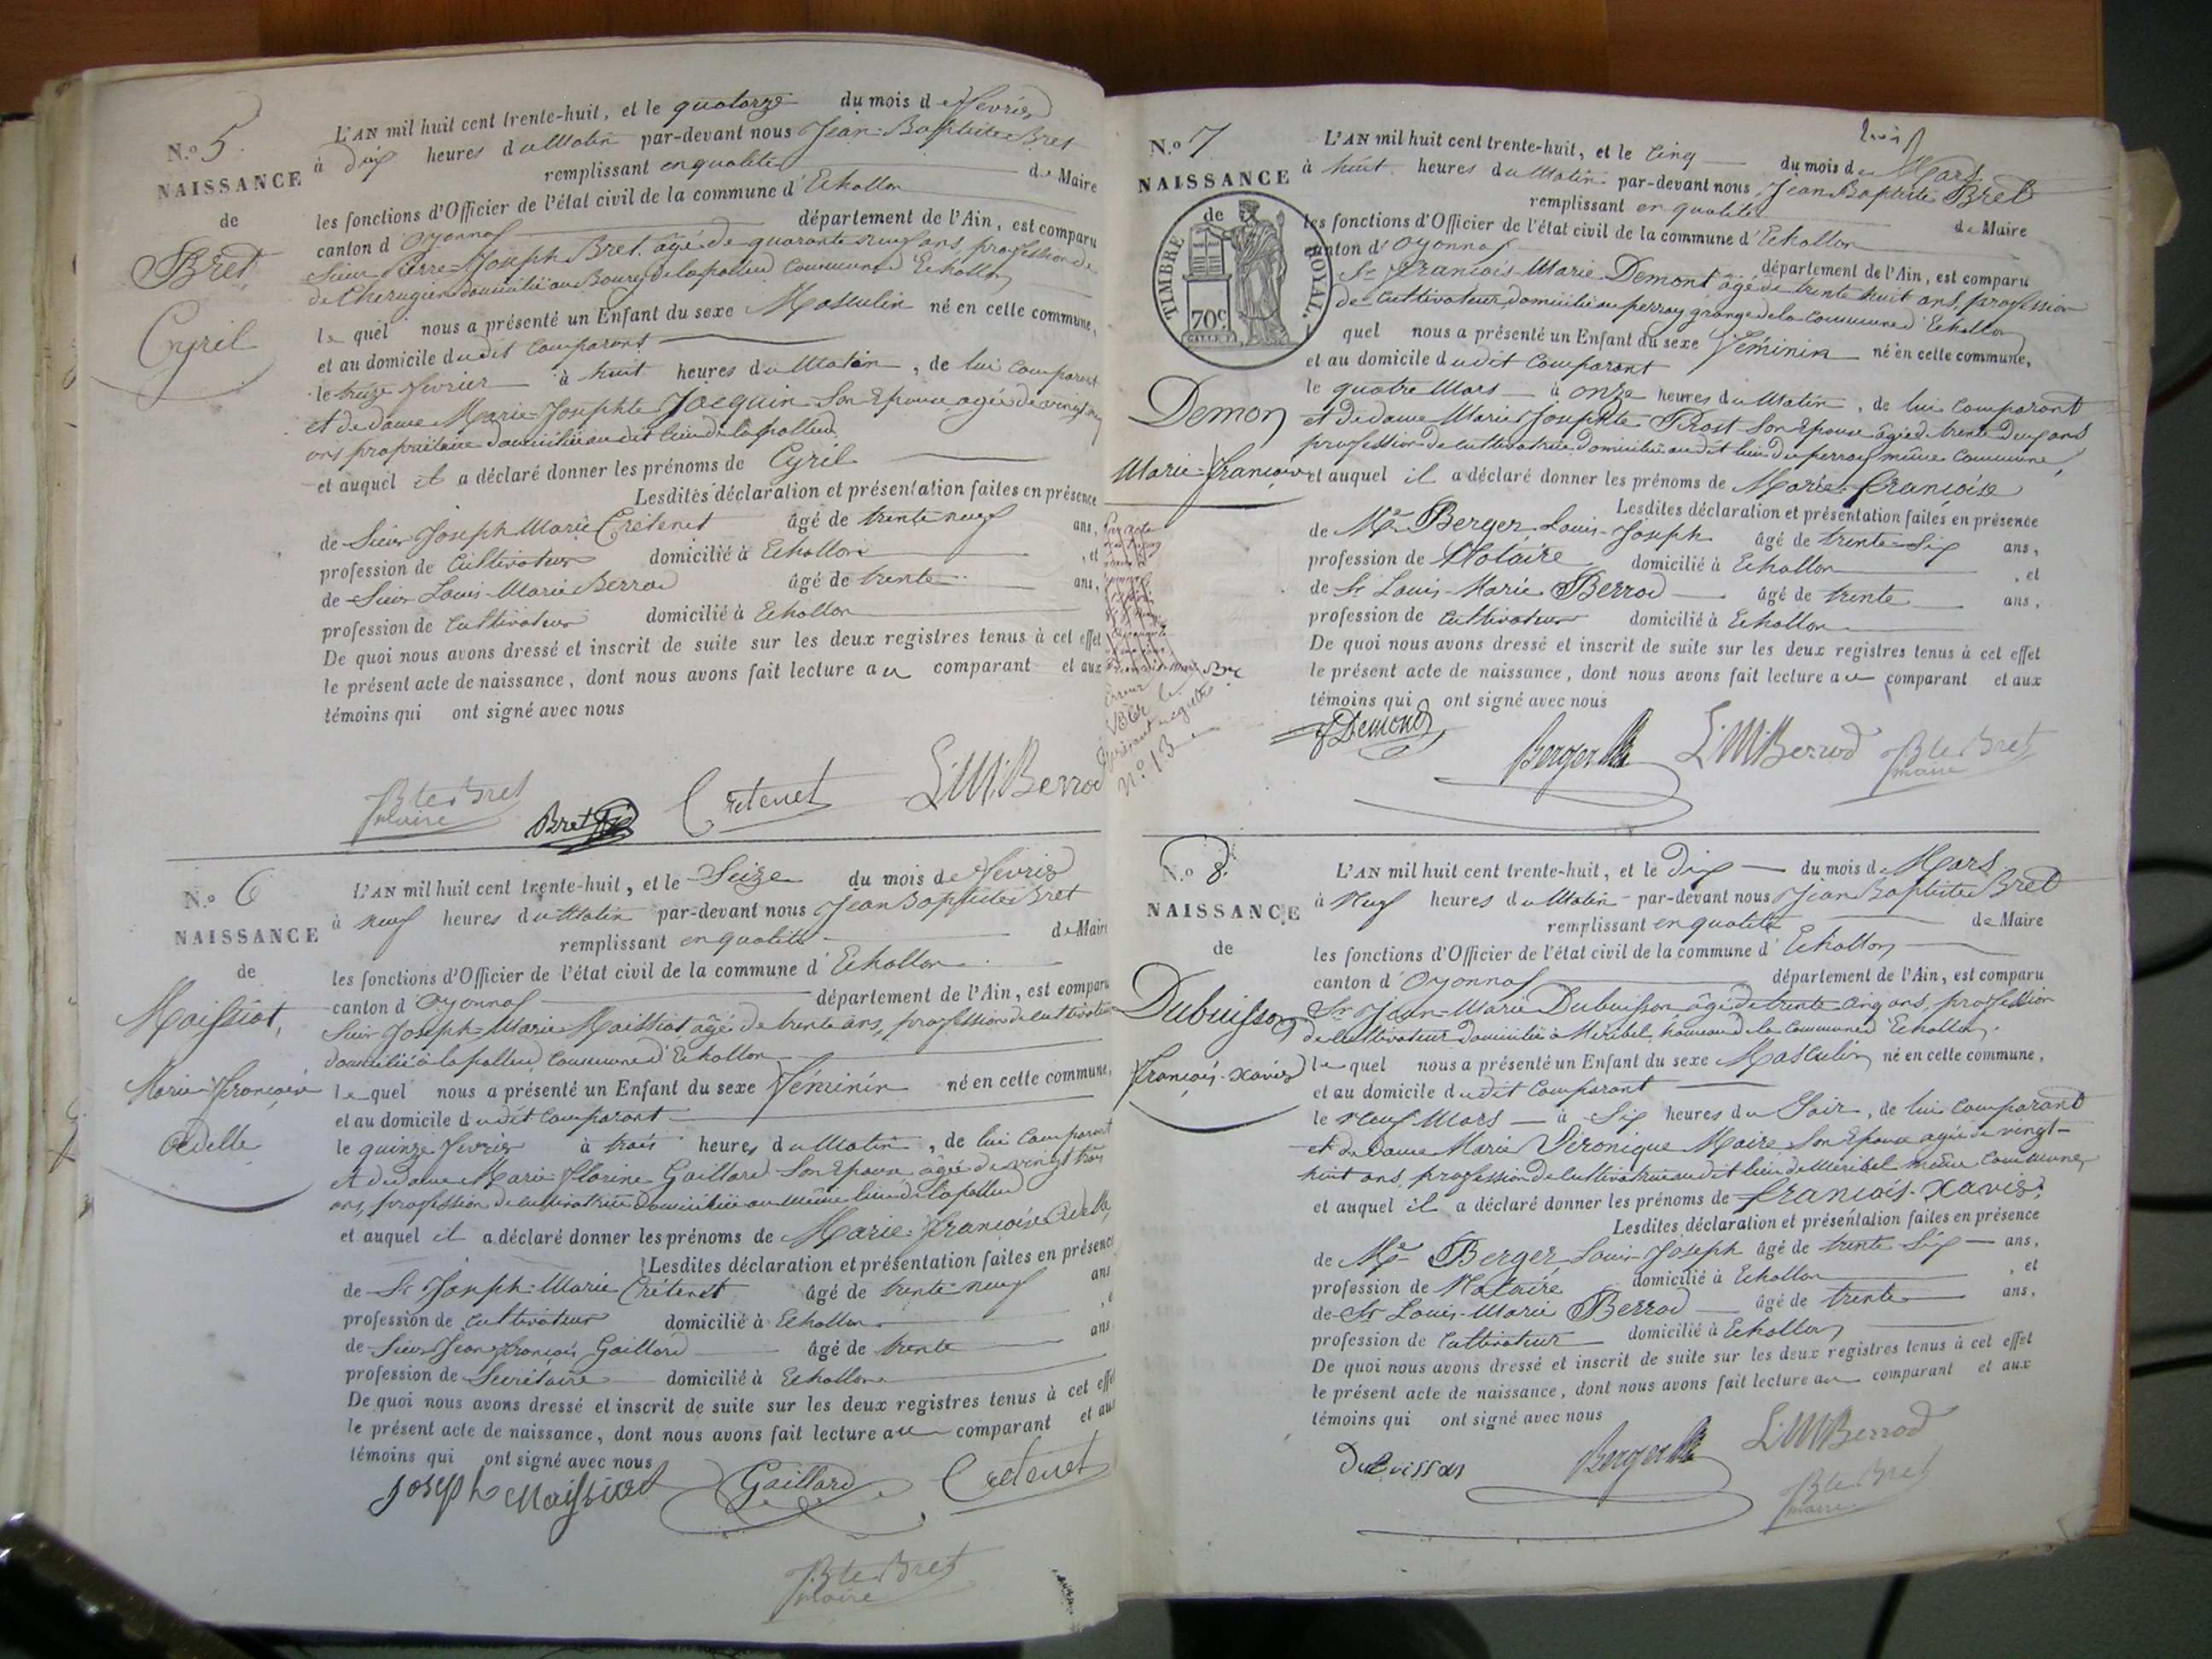 N.o 5
NAISSANCE
de
Bret
Cyril
L'AN mil huit cent trente-huit, et le quatorze du mois de Fevrier
à dix heures du Matin par-devant nous Jean-Baptiste Bret
remplissant en qualité de Maire
les fonctions d'Officier de l'état civil de la commune d'Echallon
canton d'Oyonnax département de l'Ain, est comparu
Sieur Pierre-Joseph Bret âgé de quarante neuf ans, profession de
de Cherugien domicilié au Bourg de lapalleud Commune d'Echallon
le quel nous a présenté un Enfant du sexe Masculin né en cette commune,
et au domicile dudit Comparant
le treize fevrier à huit heures du Matin, de lui comparant
et de dame Marie-Josephte Jacquin Son Epouse agée de vingt
ans propriétaire domiciliée audit lieu de lapalleud
et auquel il a déclaré donner les prénoms de Cyril
Lesdites déclaration et présentation faites en présence
de Sieur Joseph Marie Crétenet âgé de trente neuf ans,
profession de Cultivateur domicilié à Echallon, et
de Sieur Louis-Marie Berrod âgé de trente ans,
profession de Cultivateur domicilié à Echallon
De quoi nous avons dressé et inscrit de suite sur les deux registres tenus à cet effet
le présent acte de naissance, dont nous avons fait lecture au comparant et aux
témoins qui ont signé avec nous
Bte Bret
maire
Bret
Cretenet
L.M. Berrod
N.o 6
NAISSANCE
de
Maissiat,
Marie-Françoise
Adelle
L'AN mil huit cent trente-huit, et le Seize du mois de Fevrier
à neuf heures du Matin par-devant nous Jean Baptiste Bret
remplissant en qualité de Maire
les fonctions d'Officier de l'état civil de la commune d'Echallon
canton d'Oyonnax département de l'Ain, est comparu
Sieur Joseph-Marie Maissiat, âgé de trente ans, profession de cultivateur
domicilié à lapalleud, Commune d'Echallon
le quel nous a présenté un Enfant du sexe Féminin né en cette commune,
et au domicile dudit Comparant
le quinze fevrier à trois heures du Matin, de lui Comparant
et de dame Marie-Florine Gaillard Son Epouse, âgée de vingt trois
ans, profession de cultivatrice domiciliée au même lieu de lapalleud
et auquel il a déclaré donner les prénoms de Marie-Françoise Adelle,
Lesdites déclaration et présentation faites en présence
de Sr Joseph-Marie Crétenet âgé de trente neuf ans
profession de Cultivateur domicilié à Echallon, et
de Sieur Jean François Gaillard âgé de trente ans
profession de Secrétaire domicilié à Echallon
De quoi nous avons dressé et inscrit de suite sur les deux registres tenus à cet effet
le présent acte de naissance, dont nous avons fait lecture au comparant et aux
témoins qui ont signé avec nous
Joseph Maissiat
Gaillard
Cretenet
Bte Bret
maire
N.o 13
N.o 7
NAISSANCE
de
TIMBRE ROYAL.
70c
Demon
Marie-françoise
L'AN mil huit cent trente-huit, et le Cinq du mois de Mars
à huit heures du Matin par-devant nous Jean Baptiste Bret
remplissant en qualité de Maire
les fonctions d'Officier de l'état civil de la commune d'Echallon
canton d'Oyonnax département de l'Ain, est comparu
Sr François-Marie Demont âgé de trente huit ans, profession
de Cultivateur, domicilié au perray grange de la Commune d'Echallon
quel nous a présenté un Enfant du sexe Féminin né en cette commune,
et au domicile dudit Comparant
le quatre Mars à onze heures du Matin, de lui Comparant
et de dame Marie Josephte Prost Son Epouse âgée de trente deux ans
profession de cultivatrice domiciliée audit lieu du perray même Commune,
et auquel il a déclaré donner les prénoms de Marie-françoise
Lesdites déclaration et présentation faites en présence
de Me Berger, Louis-Joseph âgé de trente Six ans,
profession de Notaire domicilié à Echallon, et
de Sr Louis-Marie Berrod âgé de trente ans,
profession de Cultivateur domicilié à Echallon
De quoi nous avons dressé et inscrit de suite sur les deux registres tenus à cet effet
le présent acte de naissance, dont nous avons fait lecture au comparant et aux
témoins qui ont signé avec nous
Demond
Berger
L.M. Berrod
Bte Bret
maire
N.o 8
NAISSANCE
de
Dubuisson
François-Xavier
L'AN mil huit cent trente-huit, et le Dix du mois de Mars
à Neuf heures du Matin par-devant nous Jean Baptiste Bret
remplissant en qualité de Maire
les fonctions d'Officier de l'état civil de la commune d'Echallon
canton d'Oyonnax département de l'Ain, est comparu
Sr Jean-Marie Dubuisson, âgé de trente cinq ans, profession
de Cultivateur domicilié à Méribel, hameau de la Commune d'Echallon,
le quel nous a présenté un Enfant du sexe Masculin né en cette commune,
et au domicile dudit Comparant
le neuf Mars à Six heures du Soir, de lui Comparant
et de dame Marie Veronique Maire Son Epouse agée de vingt-
huit ans, profession de Cultivatrice audit lieu de Méribel même Commune
et auquel il a déclaré donner les prénoms de françois-Xavier.
Lesdites déclaration et présentation faites en présence
de Me Berger Louis-Joseph âgé de trente Six ans,
profession de Notaire domicilié à Echallon, et
de Sr Louis-Marie Berrod âgé de trente ans,
profession de Cultivateur domicilié à Echallon
De quoi nous avons dressé et inscrit de suite sur les deux registres tenus à cet effet
le présent acte de naissance, dont nous avons fait lecture au comparant et aux
témoins qui ont signé avec nous
Dubuisson
Berger
L.M. Berrod
Bte Bret
maire